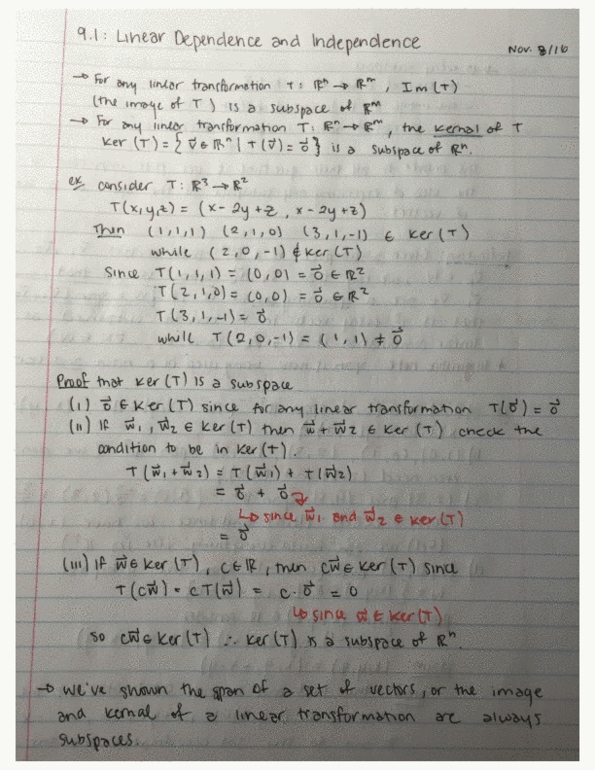 9.1: Linear Dependence and Independence
Nov. 8/16
→ For any linear transformation T: ℝⁿ → ℝᵐ, Im(T)
(the image of T) is a subspace of ℝᵐ
→ For any linear transformation T: ℝⁿ → ℝᵐ, the kernal of T
Ker(T) = { v⃗ ∈ ℝⁿ | T(v⃗) = 0⃗ } is a subspace of ℝⁿ.
ex consider T: ℝ³ → ℝ²
T(x,y,z) = (x - 2y + z, x - 2y + z)
Then (1,1,1) (2,1,0) (3,1,-1) ∈ Ker(T)
while (2,0,-1) ∉ Ker(T)
Since T(1,1,1) = (0,0) = 0⃗ ∈ ℝ²
T(2,1,0) = (0,0) = 0⃗ ∈ ℝ²
T(3,1,-1) = 0⃗
while T(2,0,-1) = (1,1) ≠ 0⃗
Proof that Ker(T) is a subspace
(i) 0⃗ ∈ Ker(T) since for any linear transformation T(0⃗) = 0⃗
(ii) If w⃗₁, w⃗₂ ∈ Ker(T) then w⃗ + w⃗₂ ∈ Ker(T) check the
condition to be in Ker(T).
T(w⃗₁ + w⃗₂) = T(w⃗₁) + T(w⃗₂)
= 0⃗ + 0⃗
↳ since w⃗₁ and w⃗₂ ∈ Ker(T)
= 0⃗
(iii) If w⃗ ∈ Ker(T), c ∈ ℝ, then cw⃗ ∈ Ker(T) since
T(cw⃗) = cT(w⃗) = c·0⃗ = 0
↳ since w⃗ ∈ Ker(T)
So cw⃗ ∈ Ker(T) ∴ Ker(T) is a subspace of ℝⁿ.
→ we've shown the span of a set of vectors, or the image
and kernal of a linear transformation are always
subspaces.